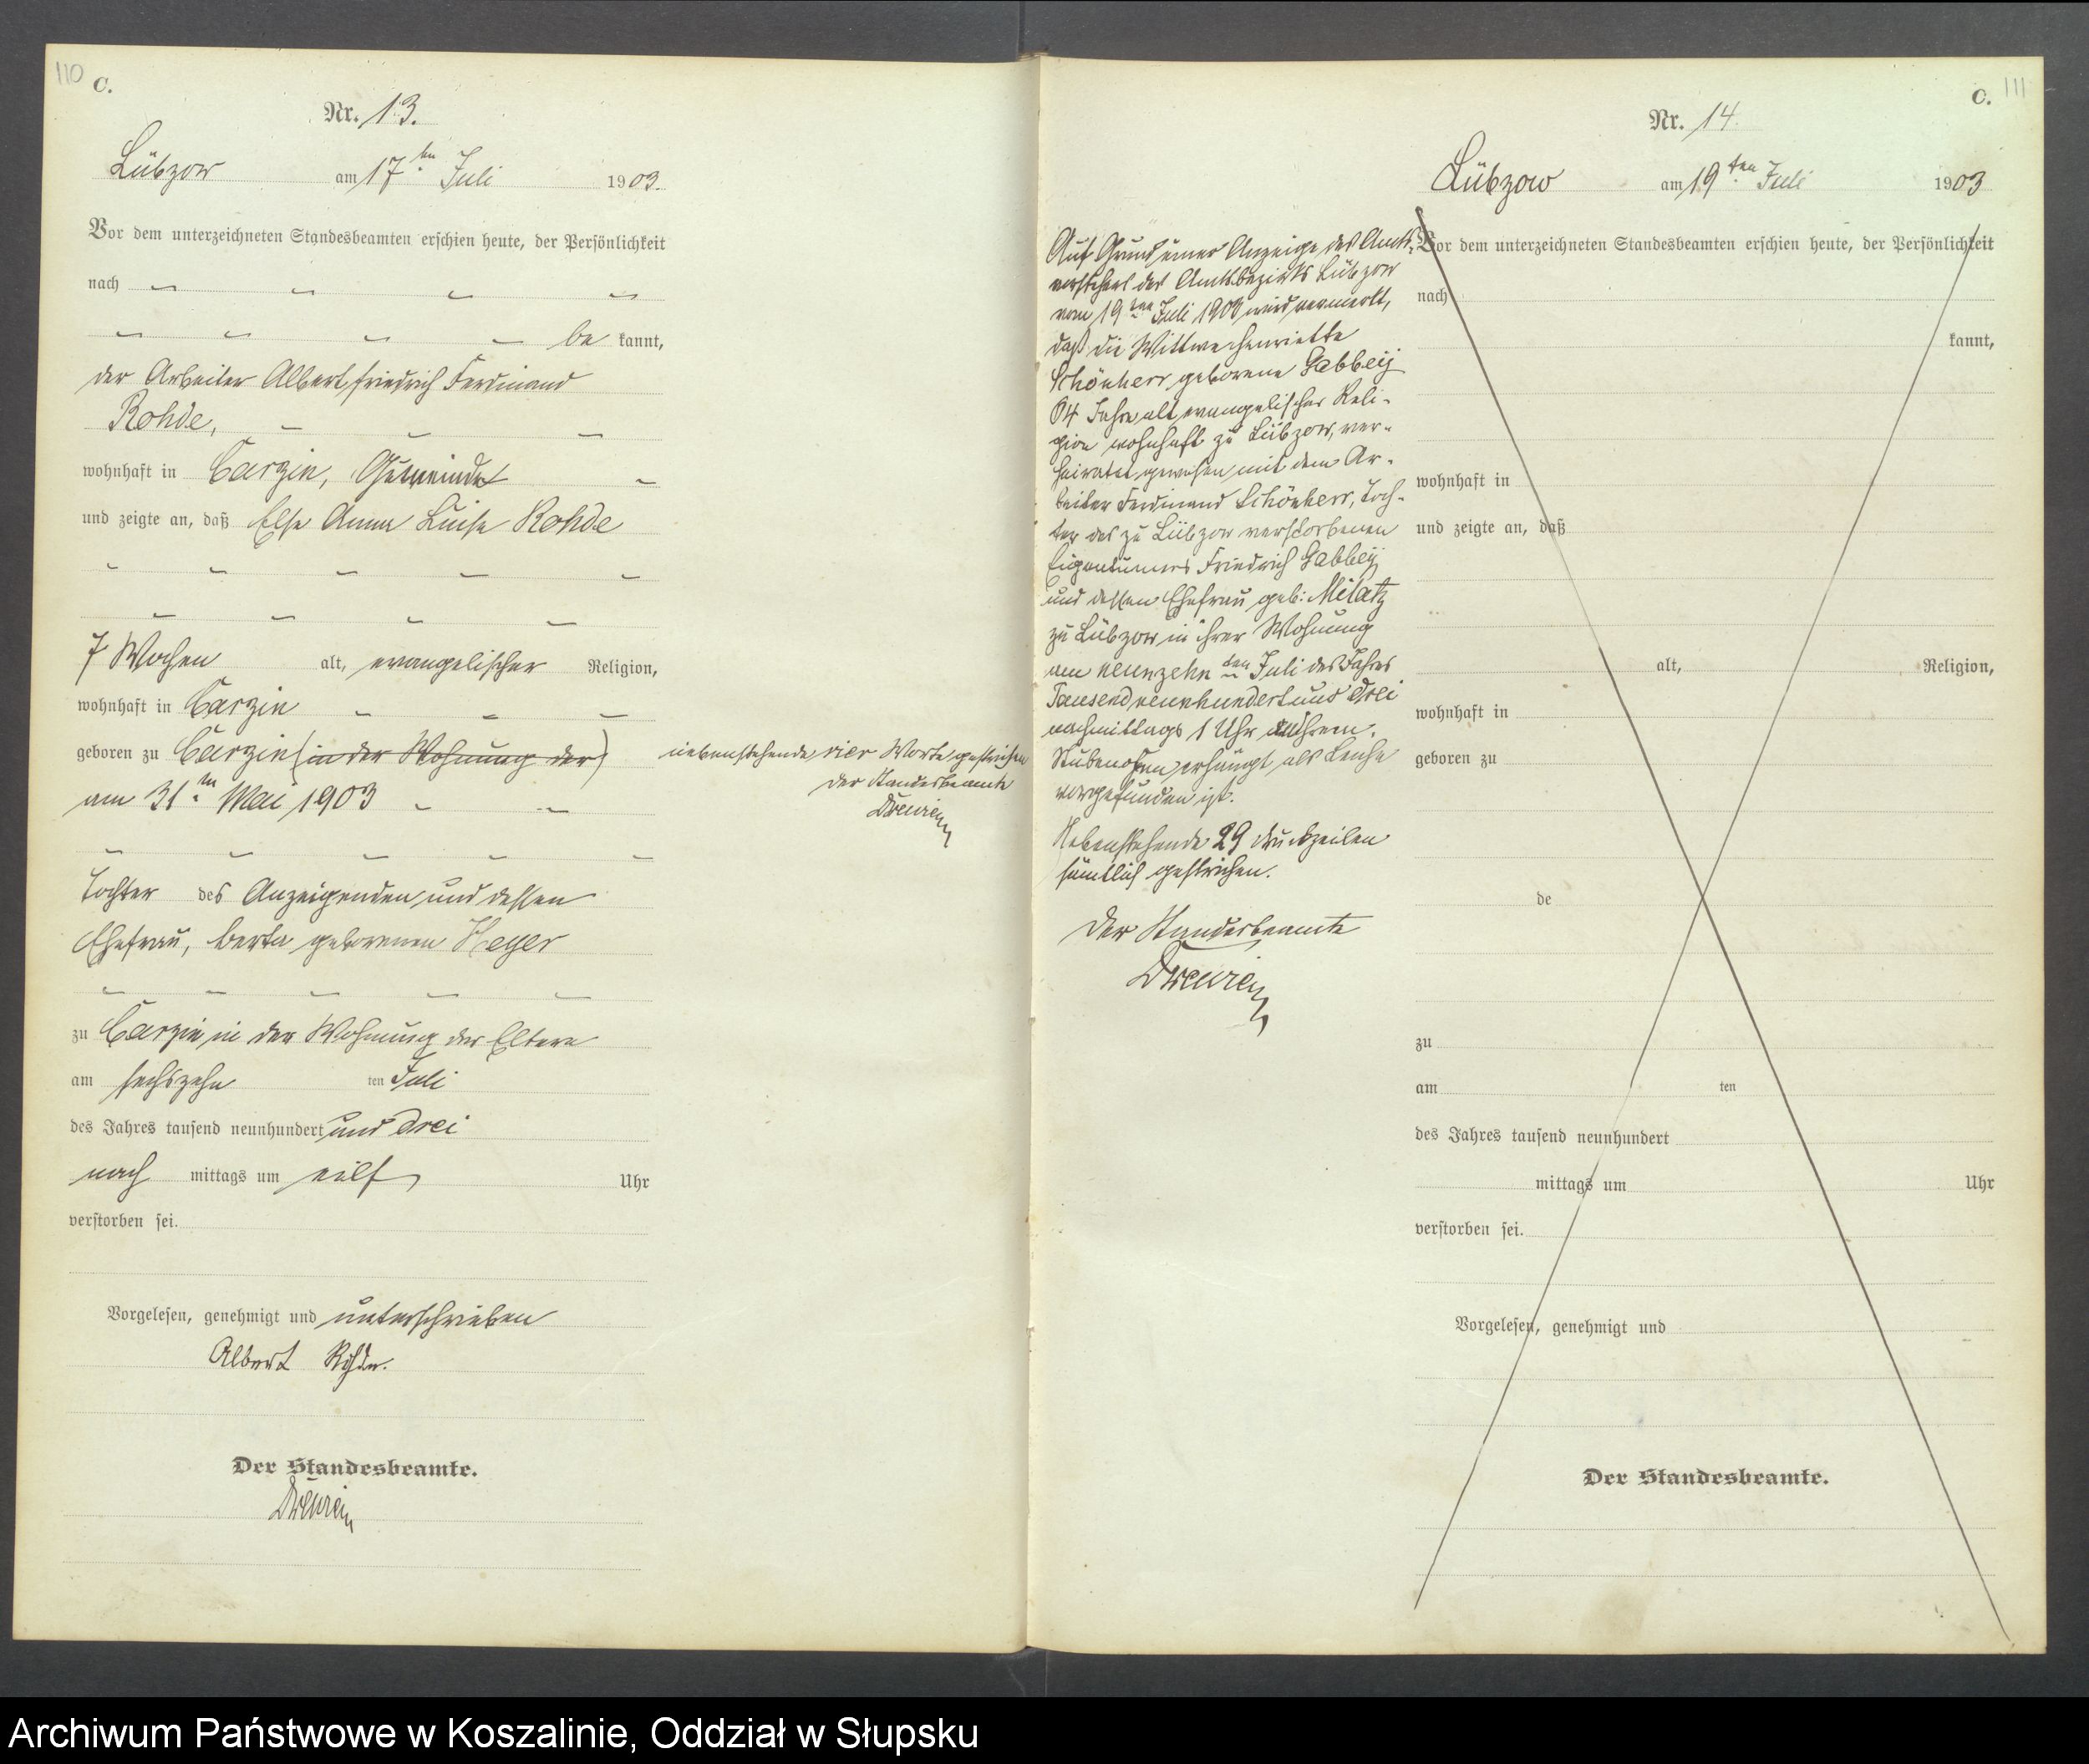 110
C.
Nr. 13.
Lübzow am 17ten Juli 1903.
Vor dem unterzeichneten Standesbeamten erschien heute, der Persönlichkeit
nach
be kannt,
der Arbeiter Albert Friedrich Ferdinand
Rohde,
wohnhaft in Carzin, Gemeinde
und zeigte an, daß Else Anna Luise Rohde
7 Wochen alt, evangelischer Religion,
wohnhaft in Carzin
geboren zu Carzin (in der Wohnung der)
am 31ten Mai 1903
Tochter des Anzeigenden und dessen
Ehefrau, Berta geborenen Heyer
zu Carzin in der Wohnung der Eltern
am sechszehn ten Juli
des Jahres tausend neunhundert und drei
nach mittags um eilf Uhr
verstorben sei.
Vorgelesen, genehmigt und unterschrieben
Albert Rohde.
Der Standesbeamte.
nebenstehende vier Worte gestrichen
der Standesbeamte
C. 111
Nr. 14.
Lübzow am 19ten Juli 1903
Auf Grund einer Anzeige des Amts-
vorstehers des Amtsbezirks Lübzow
vom 19ten Juli 1903 wird vermerkt,
daß die Wittwe Henriette
Schönherr geborene Gabbeÿ
64 Jahre alt, evangelischer Reli-
gion wohnhaft zu Lübzow, ver-
heiratet gewesen mit dem Ar-
beiter Ferdinand Schönherr, Toch-
ter des zu Lübzow verstorbenen
Eigentümers Friedrich Gabbeÿ
und dessen Ehefrau geb: Milatz
zu Lübzow in ihrer Wohnung
am neunzehnten Juli des Jahres
Tausend neunhundert und drei
nachmittags 1 Uhr an ihrem
Stubenofen erhängt als Leiche
vorgefunden ist.
Nebenstehende 29 Druckzeilen
sämtlich gestrichen.
Der Standesbeamte
Vor dem unterzeichneten Standesbeamten erschien heute, der Persönlichkeit
nach
kannt,
wohnhaft in
und zeigte an, daß
alt, Religion,
wohnhaft in
geboren zu
de
zu
am ten
des Jahres tausend neunhundert
mittags um Uhr
verstorben sei.
Vorgelesen, genehmigt und
Der Standesbeamte.
Archiwum Państwowe w Koszalinie, Oddział w Słupsku